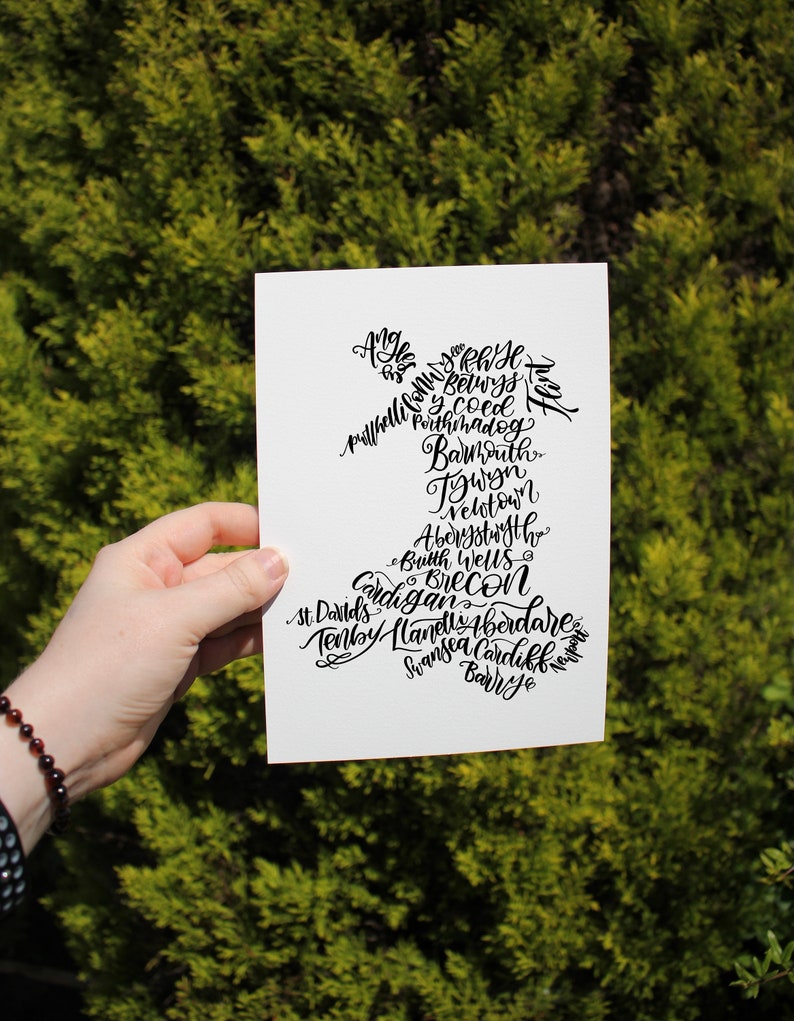 Anglesey
Pwllheli
Conwy
Rhyl
Flint
Betwys
y coed
Porthmadog
Barmouth
Tywyn
Newtown
Aberystwyth
Builth Wells
Brecon
Cardigan
St. Davids
Tenby
Llanelli
Aberdare
Swansea
Cardiff
Newport
Barry